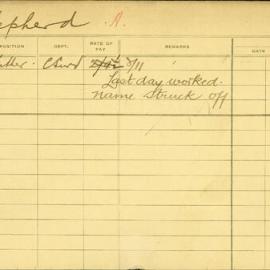 epherd A.
POSITION DEPT. RATE OF PAY REMARKS DATE
Last day worked.
name struck off